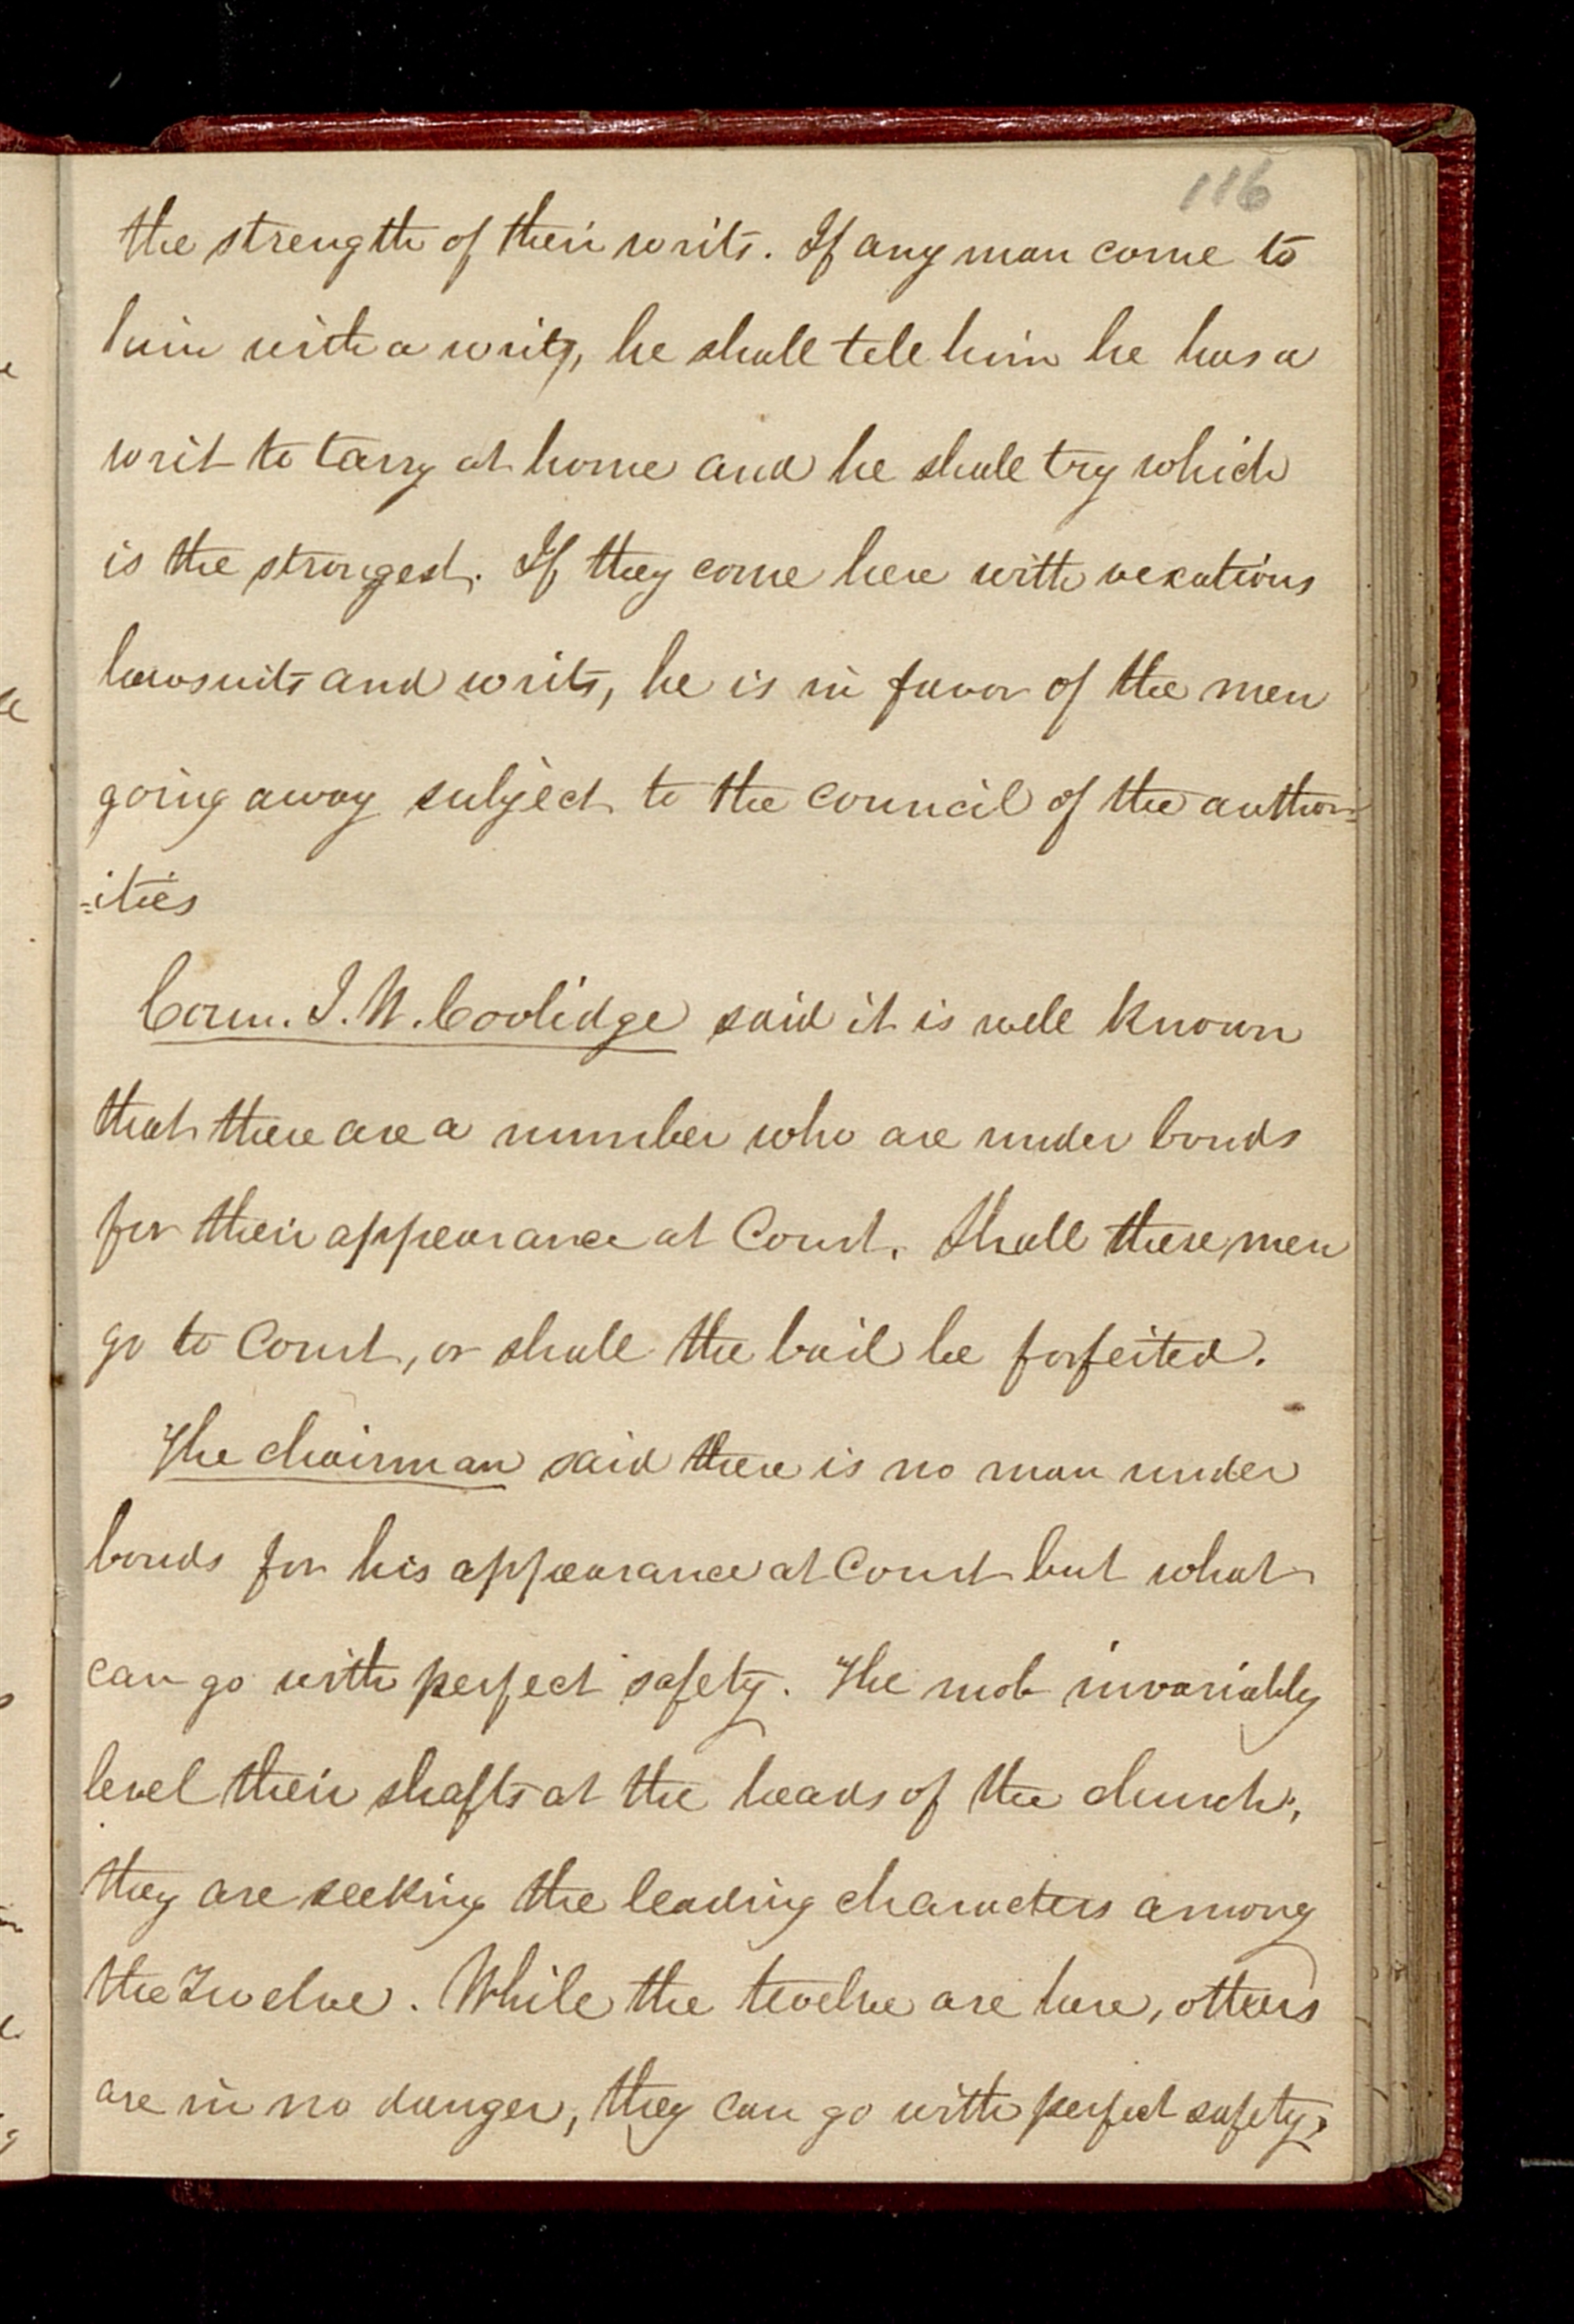 116
the strength of their writs. If any man come to
him with a writ, he shall tell him he has a
writ to tarry at home and he shall try which
is the strongest. If they come here with vexatious
lawsuits and writs, he is in favor of the men
going away subject to the council of the author=
=ities
Coun. J. W. Coolidge said it is well known
that there are a number who are under bonds
for their appearance at Court. Shall these men
go to Court, or shall the bail be forfeited.
The chairman said there is no man under
bonds for his appearance at Court but what
can go with perfect safety. The mob invariably
level their shafts at the heads of the church;
they are seeking the leading characters among
the Twelve. While the twelve are here, others
are in no danger, they can go with perfect safety,